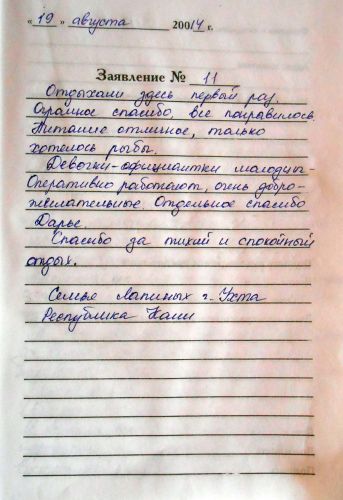 « 19 » августа 20014 г.
Заявление № 11
Отдыхали здесь первый раз.
Огромное спасибо, все понравилось.
Питание отличное, только
хотелось рыбы.
Девочки-официантки молодцы-
Оперативно работают, очень добро-
желательные. Отдельное спасибо
Дарье.
Спасибо за тихий и спокойный
отдых.
Семья Лапиных г. Ухта
Республика Коми